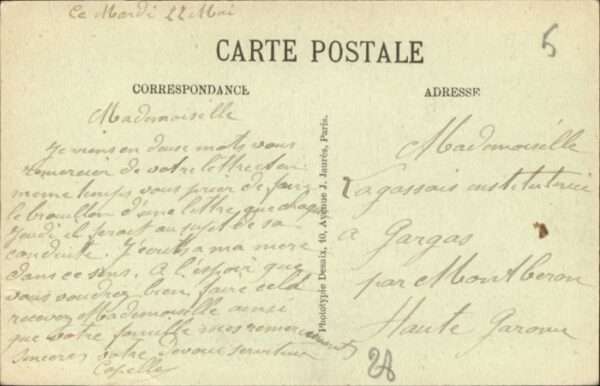 Ce Mardi 22 Mai
5
CARTE POSTALE
CORRESPONDANCE
ADRESSE
Mademoiselle
Je viens en deux mots vous
remercier de votre lettre et en
meme temps vous prier de faire
le brouillon d'une lettre que chaque
jeudi il serait au sujet de sa
conduite. J'écrits a ma mere
dans ce sens. A l'espoir que
vous voudrez bien faire cela
recevez Mademoiselle ainsi
que votre famille mes remerciements
sinceres votre devoué serviteur
Capelle
Phototypie Desaix, 40, Avenue J. Jaurès, Paris.
Mademoiselle
Lagassais institutrice
a Gargas
par Montberon
Haute Garonne
28